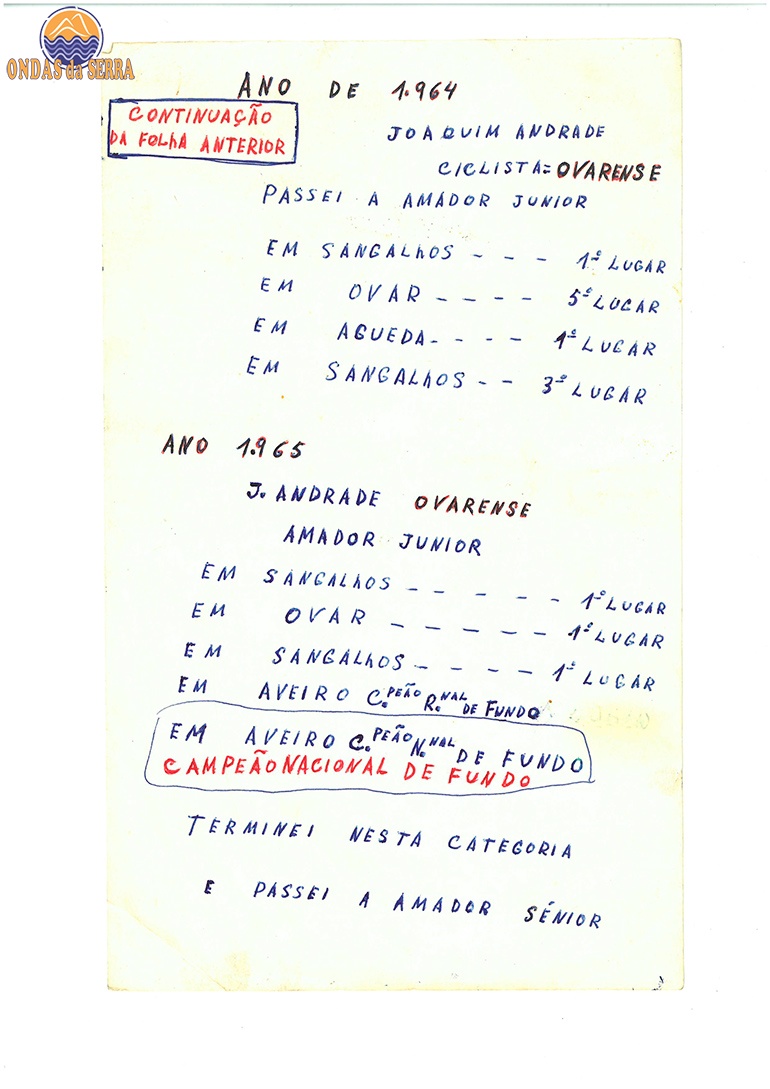 ONDAS da SERRA
ANO DE 1.964
CONTINUAÇÃO
DA FOLHA ANTERIOR
JOAQUIM ANDRADE
CICLISTA = OVARENSE
PASSEI A AMADOR JUNIOR
EM SANGALHOS - - - 1º LUGAR
EM OVAR - - - - 5º LUGAR
EM AGUEDA - - - - 1º LUGAR
EM SANGALHOS - - 3º LUGAR
ANO 1.965
J. ANDRADE OVARENSE
AMADOR JUNIOR
EM SANGALHOS - - - - - 1º LUGAR
EM OVAR - - - - - - 1º LUGAR
EM SANGALHOS - - - - - 1º LUGAR
EM AVEIRO C.PEÃO R.NAL DE FUNDO
EM AVEIRO C.PEÃO N.NAL DE FUNDO
CAMPEÃO NACIONAL DE FUNDO
TERMINEI NESTA CATEGORIA
E PASSEI A AMADOR SÉNIOR